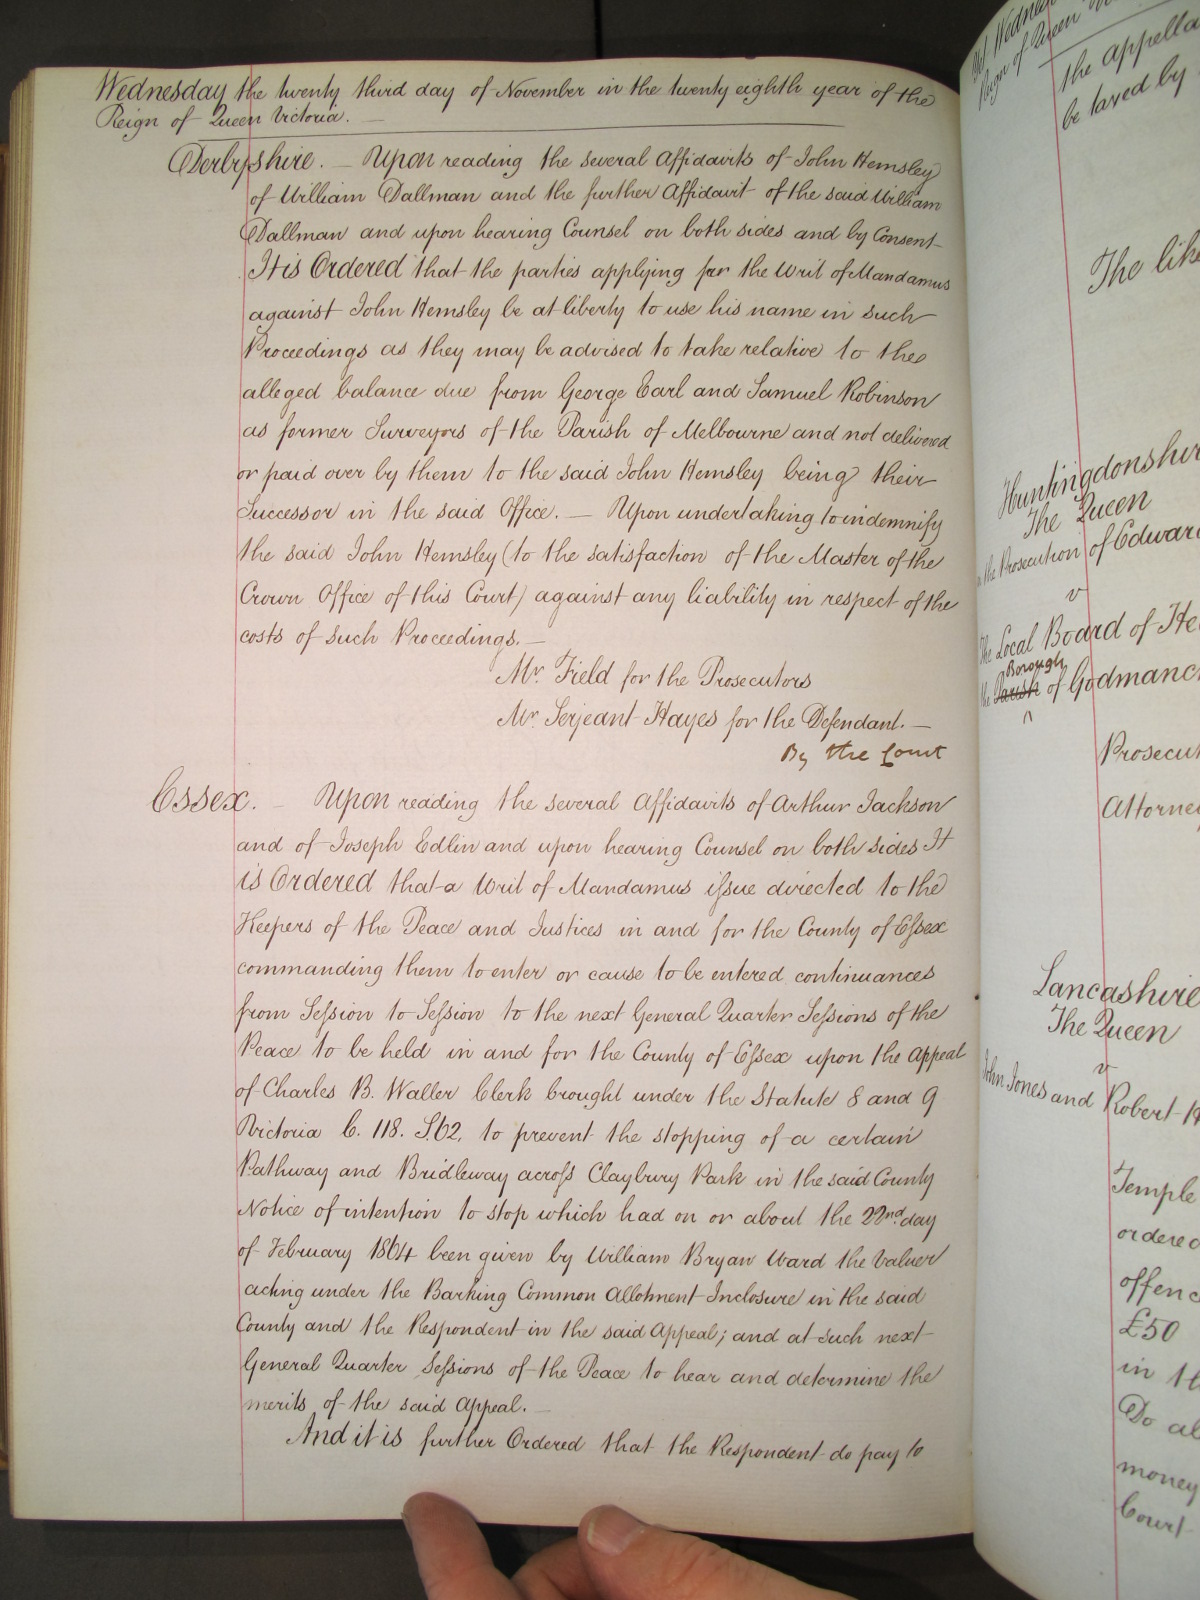 Wednesday the twenty third day of November in the twenty eighth year of the
Reign of Queen Victoria. —
Derbyshire. — Upon reading the several Affidavits of John Hemsley
of William Dallman and the further Affidavit of the said William
Dallman and upon hearing Counsel on both sides and by Consent
It is Ordered that the parties applying for the Writ of Mandamus
against John Hemsley be at liberty to use his name in such
Proceedings as they may be advised to take relative to the
alleged balance due from George Earl and Samuel Robinson
as former Surveyors of the Parish of Melbourne and not delivered
or paid over by them to the said John Hemsley being their
Successor in the said Office. — Upon undertaking to indemnify
the said John Hemsley (to the satisfaction of the Master of the
Crown Office of this Court) against any liability in respect of the
costs of such Proceedings. —
Mr. Field for the Prosecutors
Mr. Serjeant Hayes for the Defendant. —
By the Court
Essex. — Upon reading the several Affidavits of Arthur Jackson
and of Joseph Edlin and upon hearing Counsel on both sides It
is Ordered that a Writ of Mandamus issue directed to the
Keepers of the Peace and Justices in and for the County of Essex
commanding them to enter or cause to be entered continuances
from Session to Session to the next General Quarter Sessions of the
Peace to be held in and for the County of Essex upon the Appeal
of Charles B. Waller Clerk brought under the Statute 8 and 9
Victoria C. 118. S. 62, to prevent the stopping of a certain
Pathway and Bridleway across Claybury Park in the said County
Notice of intention to stop which had on or about the 22nd. day
of February 1864 been given by William Bryan Ward the Valuer
acting under the Barking Common Allotment Inclosure in the said
County and the Respondent in the said Appeal; and at such next
General Quarter Sessions of the Peace to hear and determine the
merits of the said Appeal. —
And it is further Ordered that the Respondent do pay to
the appella
be taxed by
The like
Huntingdonshire
The Queen
the Prosecution of Edward
v
The Local Board of He
Borough
the Parish of Godmanc
Prosecut
Attorne
Lancashire
The Queen
v
John Jones and Robert H
Temple
ordered
offenc
£50
in th
Do al
money
Court